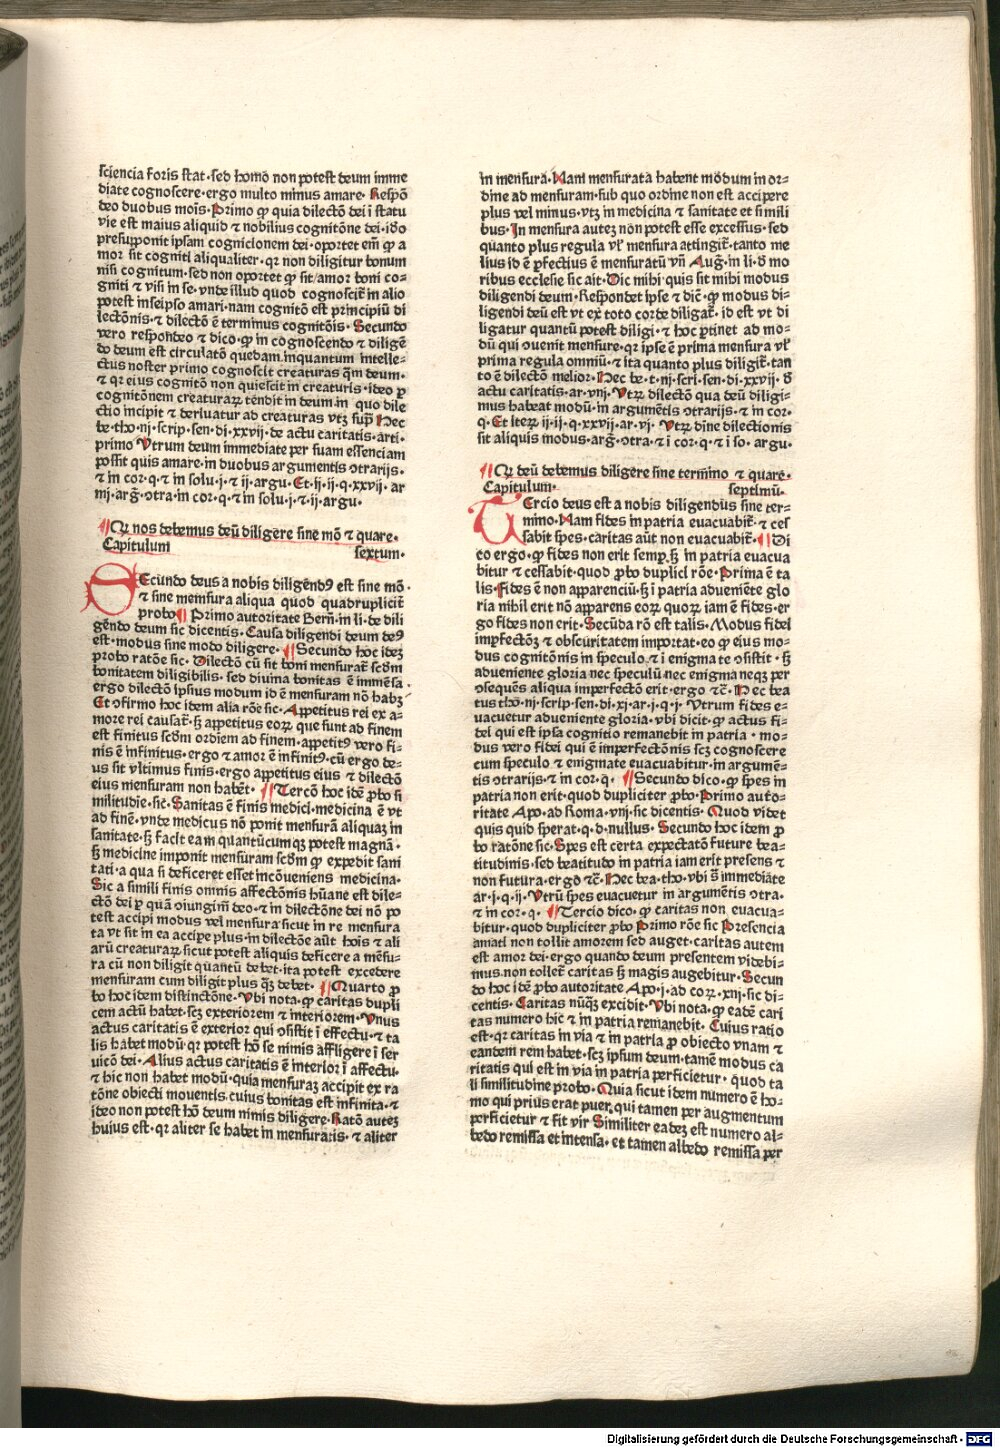 sciencia foris stat·sed homo non potest deum imme
diate cognoscere·ergo multo minus amare· Respō
deo duobus mōis·Primo ꝙ quia dilectō dei ī statu
vie est maius aliquid ⁊ nobilius cognitōne dei·iđo
presupponit ipsam cognicionem dei·oportet em̄ ꝙ a
mor sit cogniti aliqualiter·qr non diligitur bonum
nisi cognitum·sed non oportet ꝙ sit amor boni co-
gniti ⁊ visi in se·vnde illud quod cognoscit̄ in alio
potest inseipso amari·nam cognitō est principiū di
lectōnis·⁊ dilectō ē terminus cognitōis· Secundo
vero respondeo ⁊ dico·ꝙ in cognoscendo ⁊ diligē
do deum est circulatō quedam·inquantum intelle-
ctus noster primo cognoscit creaturas q̄m deum·
⁊ qr eius cognitō non quiescit in creaturis·ideo ꝑ
cognitōnem creaturaꝝ tendit in deum·in quo dile
ctio incipit ⁊ deriuatur ad creaturas vtꝫ sup̄ Hec
be·tho·nj·scrip·sen·di·xxvij·de actu caritatis·arti·
primo Vtrum deum immediate per suam essenciam
possit quis amare·in duobus argumentis ↄtrarijs·
⁊ in cor·q·⁊ in solu·j·⁊ ij·argu·Et·ij·ij·q·xxvij·ar
nij·arḡ·ↄtra·in cor·q·⁊ in solu·j·⁊ ij·argu·
¶Qr nos debemus deū diligere sine mō ⁊ quare·
Capitulum sextum·
SEcundo deus a nobis diligendꝰ est sine mō·
⁊ sine mensura aliqua quod quadruplicit̄
probo¶ Primo autoritate Bern̄·in li·de dili
gēndo deum sic dicentis·Causa diligendi deum deꝰ
est·modus sine modo diligere· ¶Secundo hoc ideꝫ
ꝓrobo ratōe sic· Dilectō cū sit boni mensurat̄ scđm
bonitatem diligibilis·sed diuina bonitas ē immēsa·
ergo dilectō ipsius modum id ē mensuram nō habꝫ
Et ↄfirmo hoc idem alia rōe sic·Appetitus rei ex a-
more rei causat̄·ꝫ appetitus eoꝝ que sunt ad finem
est finitus scđm ordiem ad finem·appetitꝰ vero fi-
nis ē infinitus·ergo ⁊ amor ē infinitꝰ·cū ergo de-
us sit vltimus finis·ergo appetitus eius ⁊ dilectō
eius mensuram non habēt· ¶Tercō hoc idē ꝓbo si
militudie·sic·Sanitas ē finis medici·medicina ē vt
ad finē·vnde medicus nō ponit mensurā aliquaꝫ in
sanitate·ꝫ facit eam quantūcumqꝫ potest magnā·
ꝫ medicine imponit mensuram scđm ꝙ expedit sani
tati·a qua si deficeret esset incōueniens medicina·
Sic a simili finis omnis affectōnis hūane est dile-
ctō dei ꝑ quā ↄiungim̄ deo·⁊ in dilectōne dei nō po
test accipi modus vel mensura·sicut in re mensura
ta vt sit in ea accipe plus·in dilectōe aūt hois ⁊ ali
arū creaturaꝝ sicut potest aliquis deficere a mēsu-
ra cū non diligit quantū debet·ita potest excedere
mensuram cum diligit plus qꝫ debet· ¶Quarto ꝓ
bo hoc idem distinctōne·Vbi nota·ꝙ caritas dupli
cem actū habet·scꝫ exteriorem ⁊ interiorem·Vnus
actus caritatis ē exterior qui ↄsistit ī effectu·⁊ ta
lis habet modū·qr potest hō se nimis affligere ī ser
uicō dei·Alius actus caritatis ē interior ī affectu·
⁊ hic non habet modū·quia mensuraꝫ accipit ex ra
tōne obiecti mouentis·cuius bonitas est infinita·⁊
ideo non potest hō deum nimis diligere·Ratō auteꝫ
huius est·qr aliter se habet in mensuratis·⁊ aliter
in mensura·Nam mensurata habent modum in or-
dine ad mensuram·sub quo ordine non est accipere
plus vel minus·vtꝫ in medicina ⁊ sanitate et simili
bus·In mensura auteꝫ non potest esse excessus·sed
quanto plus regula vl̄ mensura attingit̄·tanto me
lius id ē ꝑfectius ē mensuratū vn̄ Auḡ·in li·đ mo
ribus ecclesie sic ait·Dic mihi·quis sit mihi modus
diligendi deum·Respondet ipse ⁊ dic̄·ꝙ modus di-
ligendi deū est vt ex toto corde diligat̄·id est vt di
ligatur quantū potest diligi·⁊ hoc ꝑtinet ad mo-
dū qui ↄuenit mensure·qr ipse ē prima mensura vl̄
prima regula omniū·⁊ ita quanto plus diligit̄·tan
to ē dilectō melior·Hec be·t·nj·scri·sen·di·xxvij·đ
actu caritatis·ar·vnj·Vtꝝ dilectō qua deū diligi-
mus habeat modū·in argumētis ↄtrarijs·⁊ in cor·
q·Et iteꝝ ij·ij·q·xxvij·ar·vj·Vtꝝ dine dilectionis
sit aliquis modus·arḡ·ↄtra·⁊ i cor·q·⁊ i so·argu·
¶Qr deū debemus diligere sine termino ⁊ quare·
Capitulum· septimū·
TErcio deus est a nobis diligendus sine ter-
mino·Nam fides in patria euacuabit̄·⁊ ces
sabit spes·caritas aūt non euacuabit̄·¶Di
co ergo·ꝙ fides non erit semꝑ·ꝫ in patria euacua
bitur ⁊ cessabit·quod ꝓbo duplici rōe·Prima ē ta
lis·Fides ē non apparenciū·ꝫ ī patria adueniēte glo
ria nihil erit nō apparens eoꝝ quoꝝ iam ē fides·er
go fides non erit·Secūda rō est talis·Modus fidei
imꝑfectōꝫ ⁊ obscuritatem importat·eo ꝙ eius mo-
dus cognitōnis in speculo·⁊ ī enigmate ↄsistit·ꝫ
adueniente gloria nec speculū nec enigma neqꝫ per
ↄsequēs aliqua imperfectō erit·ergo ⁊c̄·Hec bea
tus tho·nj·scrip·sen·di·xj·ar·j·q·j·Vtrum fides e-
uacuetur adueniente gloria·vbi dicit·ꝙ actus fi-
dei qui est ipsa cognitio remanebit in patria·mo-
dus vero fidei qui ē imperfectōnis scꝫ cognoscere
cum speculo ⁊ enigmate euacuabitur·in argumē-
tis ↄtrarijs·⁊ in cor·q· ¶Secundo dico·ꝙ spes in
patria non erit·quod dupliciter ꝓbo·Primo auto-
ritate Apo·ad Roma·vnj·sic dicentis·Quod videt
quis quid sperat·q·d·nullus·Secundo hoc idem ꝓ
bo ratōne sic·Spes est certa expectatō future bea-
titudinis·sed beatitudo in patria iam erit presens ⁊
non futura·ergo ⁊c̄·Hec bea·tho·vbi s̄ immediate
ar·j·q·ij·Vtrū spes euacuetur in argumētis ↄtra·
⁊ in cor·q· ¶Tercio dico·ꝙ caritas non euacua-
bitur·quod dupliciter ꝓbo Primo rōe sic Presencia
amati non tollit amorem sed auget·caritas autem
est amor dei·ergo quando deum presentem videbi-
mus·non tollet̄ caritas ꝫ magis augebitur·Secun
do hoc idē ꝓbo autoritate Apo·j·ad coꝝ·xnj·sic di-
centis·Caritas nūqꝫ excidit·Vbi nota·ꝙ eadē cari
tas numero hic ⁊ in patria remanebit·Cuius ratio
est·qr caritas in via ⁊ in patria ꝓ obiecto vnam ⁊
eandem rem habet·scꝫ ipsum deum·tamē modus ca
ritatis qui est in via in patria perficietur·quod ta
li similitudine probo·Quia sicut idem numero ē ho-
mo qui prius erat puer·qui tamen per augmentum
perficietur ⁊ fit vir Similiter eadeꝫ est numero al-
bedo remissa et intensa·et tamen albedo remissa per
Digitalisierung gefördert durch die Deutsche Forschungsgemeinschaft - DFG